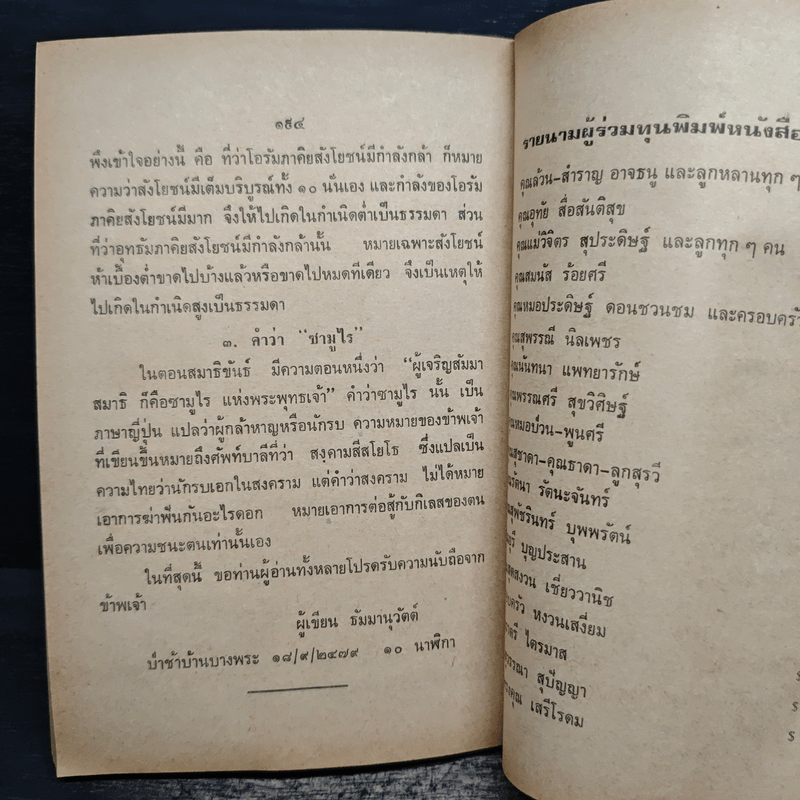 ๑๕๔
พึงเข้าใจอย่างนี้ คือ ที่ว่าโอรัมภาคิยสังโยชน์มีกำลังกล้า ก็หมาย
ความว่าสังโยชน์มีเต็มบริบูรณ์ทั้ง ๑๐ นั่นเอง และกำลังของโอรัม
ภาคิยสังโยชน์มีมาก จึงให้ไปเกิดในกำเนิดต่ำเป็นธรรมดา ส่วน
ที่ว่าอุทธัมภาคิยสังโยชน์มีกำลังกล้านั้น หมายเฉพาะสังโยชน์
ห้าเบื้องต่ำขาดไปบ้างแล้วหรือขาดไปหมดทีเดียว จึงเป็นเหตุให้
ไปเกิดในกำเนิดสูงเป็นธรรมดา
๓. คำว่า "ซามูไร"
ในตอนสมาธิขันธ์ มีความตอนหนึ่งว่า "ผู้เจริญสัมมา
สมาธิ ก็คือซามูไร แห่งพระพุทธเจ้า" คำว่าซามูไร นั้น เป็น
ภาษาญี่ปุ่น แปลว่าผู้กล้าหาญหรือนักรบ ความหมายของข้าพเจ้า
ที่เขียนขึ้นหมายถึงศัพท์บาลีที่ว่า สงฺคามสีสโยโธ ซึ่งแปลเป็น
ความไทยว่านักรบเอกในสงคราม แต่คำว่าสงคราม ไม่ได้หมาย
เอาการฆ่าฟันกันอะไรดอก หมายเอาการต่อสู้กับกิเลสของตน
เพื่อความชนะตนเท่านั้นเอง
ในที่สุดนี้ ขอท่านผู้อ่านทั้งหลายโปรดรับความนับถือจาก
ข้าพเจ้า
ผู้เขียน ธัมมานุวัตต์
ป่าช้าบ้านบางพระ ๑๘/๙/๒๔๗๙ ๑๐ นาฬิกา
รายนามผู้ร่วมทุนพิมพ์หนังสือ
คุณล้วน-สำราญ อาจธนู และลูกหลานทุก ๆ
คุณอุทัย สื่อสันติสุข
คุณแม่วิจิตร สุประดิษฐ์ และลูกทุก ๆ คน
คุณสมนัส ร้อยศรี
คุณหมอประดิษฐ์ ดอนชวนชม และครอบครัว
คุณสุพรรณี นิลเพชร
คุณนันทนา แพทยารักษ์
คุณพรรณศรี สุขวิศิษฐ์
คุณหมอป่วน-พูนศรี
คุณสุชาดา-คุณธาดา-ลูกสุรวี
รัตนา รัตนะจันทร์
สุพัชรินทร์ บุพพรัตน์
บุญประสาน
สงวน เชี่ยววานิช
ครอบครัว หงวนเสงี่ยม
ไตรมาส
สุปัญญา
เสรีโรดม
ร
ร
ร